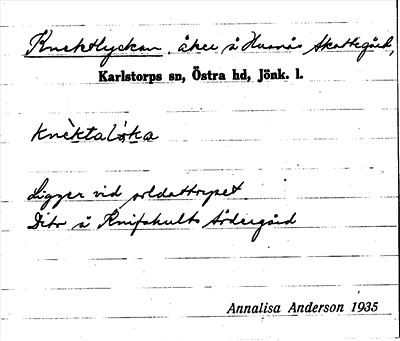 Knektlyckan, åker å Husnäs Skattegård,
Karlstorps sn, Östra hd, Jönk. l.
knèktalyka
Ligger vid soldattorpet
Dito å Knifshults Södergård
Annalisa Anderson 1935